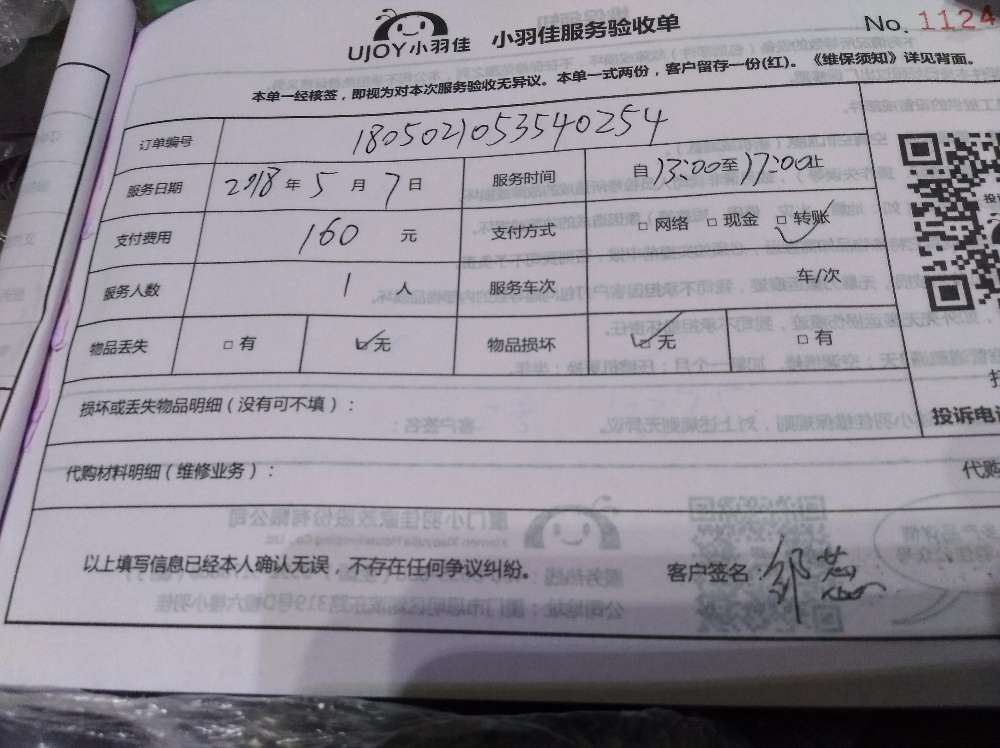 UJOY小羽佳 小羽佳服务验收单 No. 1124
本单一经核签，即视为对本次服务验收无异议。本单一式两份，客户留存一份(红)。《维保须知》详见背面。
订单编号 180502105354 0254
服务日期 2018 年 5 月 7 日 服务时间 自 13:00 至 17:00 止
支付费用 160 元 支付方式 □ 网络 □ 现金 □ 转账
服务人数 1 人 服务车次 车/次
物品丢失 □ 有 □ 无 物品损坏 □ 无 □ 有
损坏或丢失物品明细（没有可不填）：
投诉电
代购材料明细（维修业务）： 代购
以上填写信息已经本人确认无误，不存在任何争议纠纷。 客户签名：邹